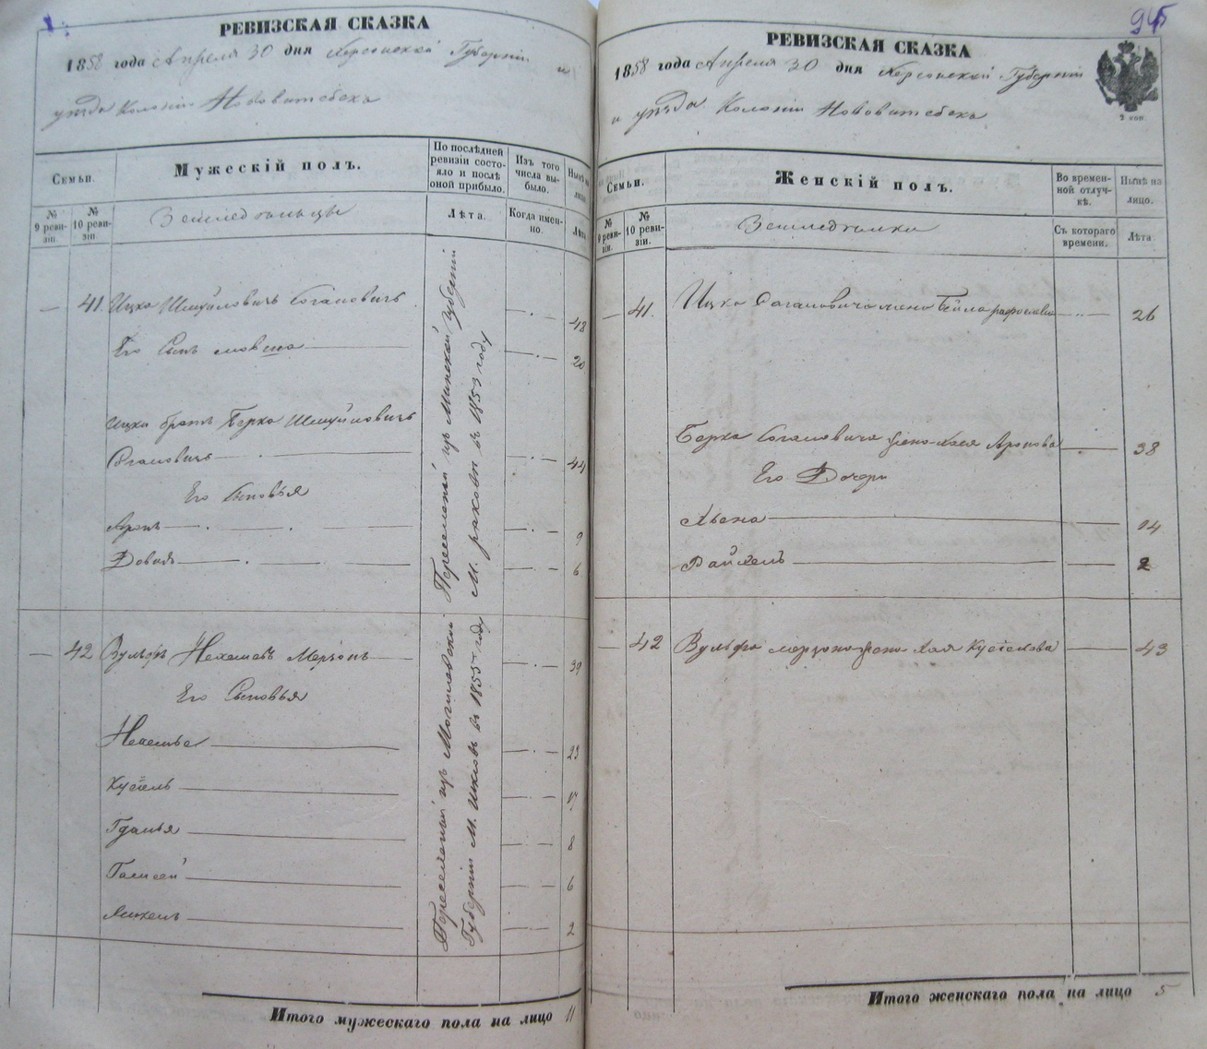 РЕВИЗСКАЯ СКАЗКА
1858 года Апреля 30 дня Херсонской Губерніи и
уѣзда Колоніи Нововитебска
Семьи.
Мужескій полъ.
По послѣдней ревизіи состояло и послѣ оной прибыло.
Изъ того числа выбыло.
Нынѣ на лицо
№ 9 ревизіи.
№ 10 ревизіи.
Земледельцы
Лѣта.
Когда именно.
Лѣта
41. Ицко Шмуйловичъ Коганович 48
Его Сынъ мовша 20
Ицки братъ Берко Шмуйловичъ
Коганович 44
Его Сыновья
Аронъ 9
Довидъ 6
Переселены изъ Минской Губерніи
М. раковъ въ 1853 году
42 Вульфъ Мерзонъ 39
Его Сыновья
23
Кусіель 17
8
6
2
Переселены изъ Могилевской
Губерніи М. шкловъ въ 1855 году
Итого мужескаго пола на лицо 11
945
РЕВИЗСКАЯ СКАЗКА
1858 года Апреля 30 дня Херсонской Губерніи
и уѣзда Колоніи Нововитебска
2 коп.
Семьи.
Женскій полъ.
Во временной отлучкѣ.
Нынѣ на лицо.
№ 9 ревизіи.
№ 10 ревизіи.
Земледелки
Съ котораго времени.
Лѣта
41. Ицки Когановича жена Бейла 26
Берки Когановича жена Хая Аронова 38
Его Дочери
Хьена 14
Райхель 2
42 Вульфа мерзона жена Хая Кусіелова 43
Итого женскаго пола на лицо 5